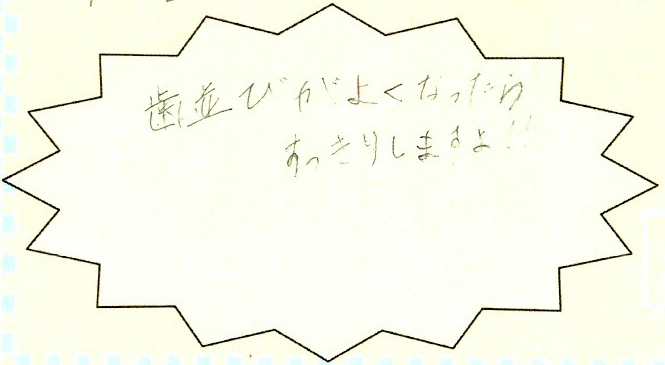 歯並びがよくなったら
すっきりしますよ!!